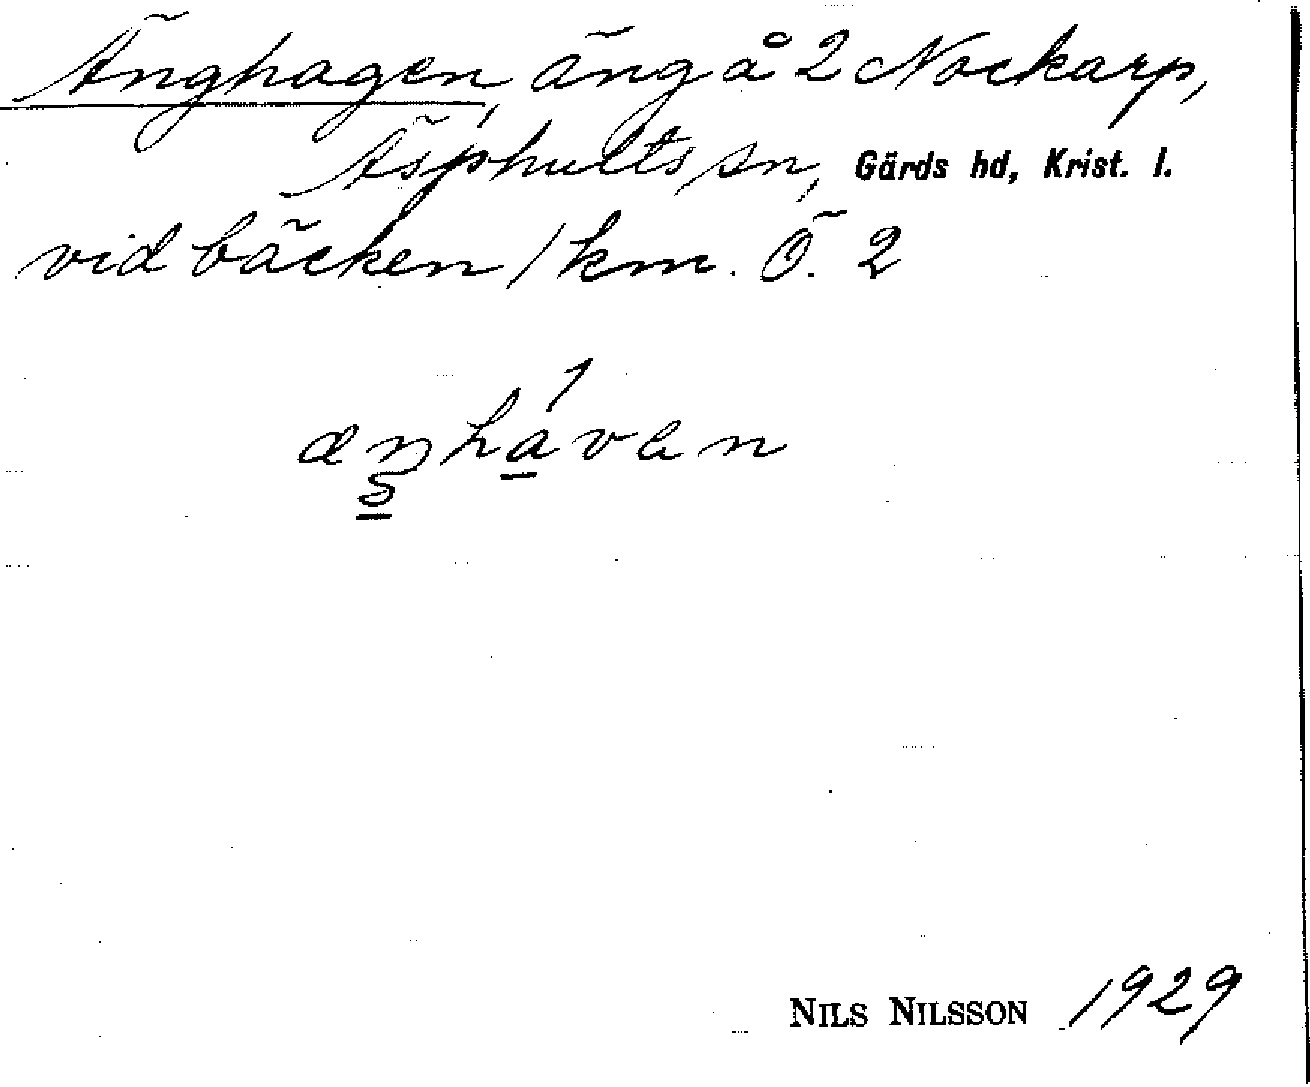 Änghagen, äng å 2 Nockarp,
Äsphults sn, Gärds hd, Krist. l.
vid bäcken 1 km. Ö. 2
1
æŋhavan
s
NILS NILSSON 1929